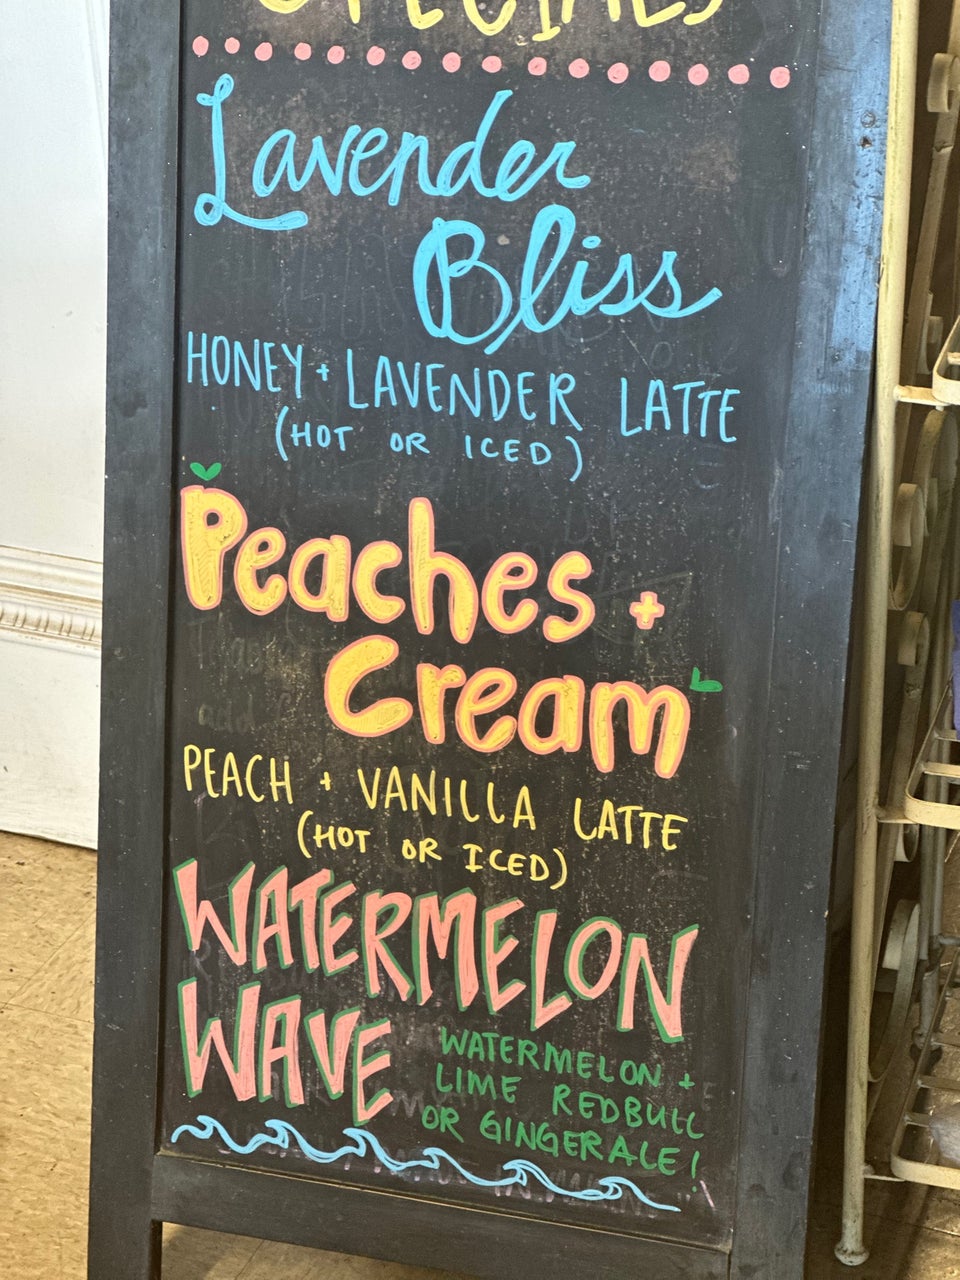 SPECIALS
Lavender
Bliss
HONEY + LAVENDER LATTE
(HOT OR ICED)
Peaches +
Cream
PEACH + VANILLA LATTE
(HOT OR ICED)
WATERMELON
WAVE
WATERMELON +
LIME REDBULL
OR GINGERALE!